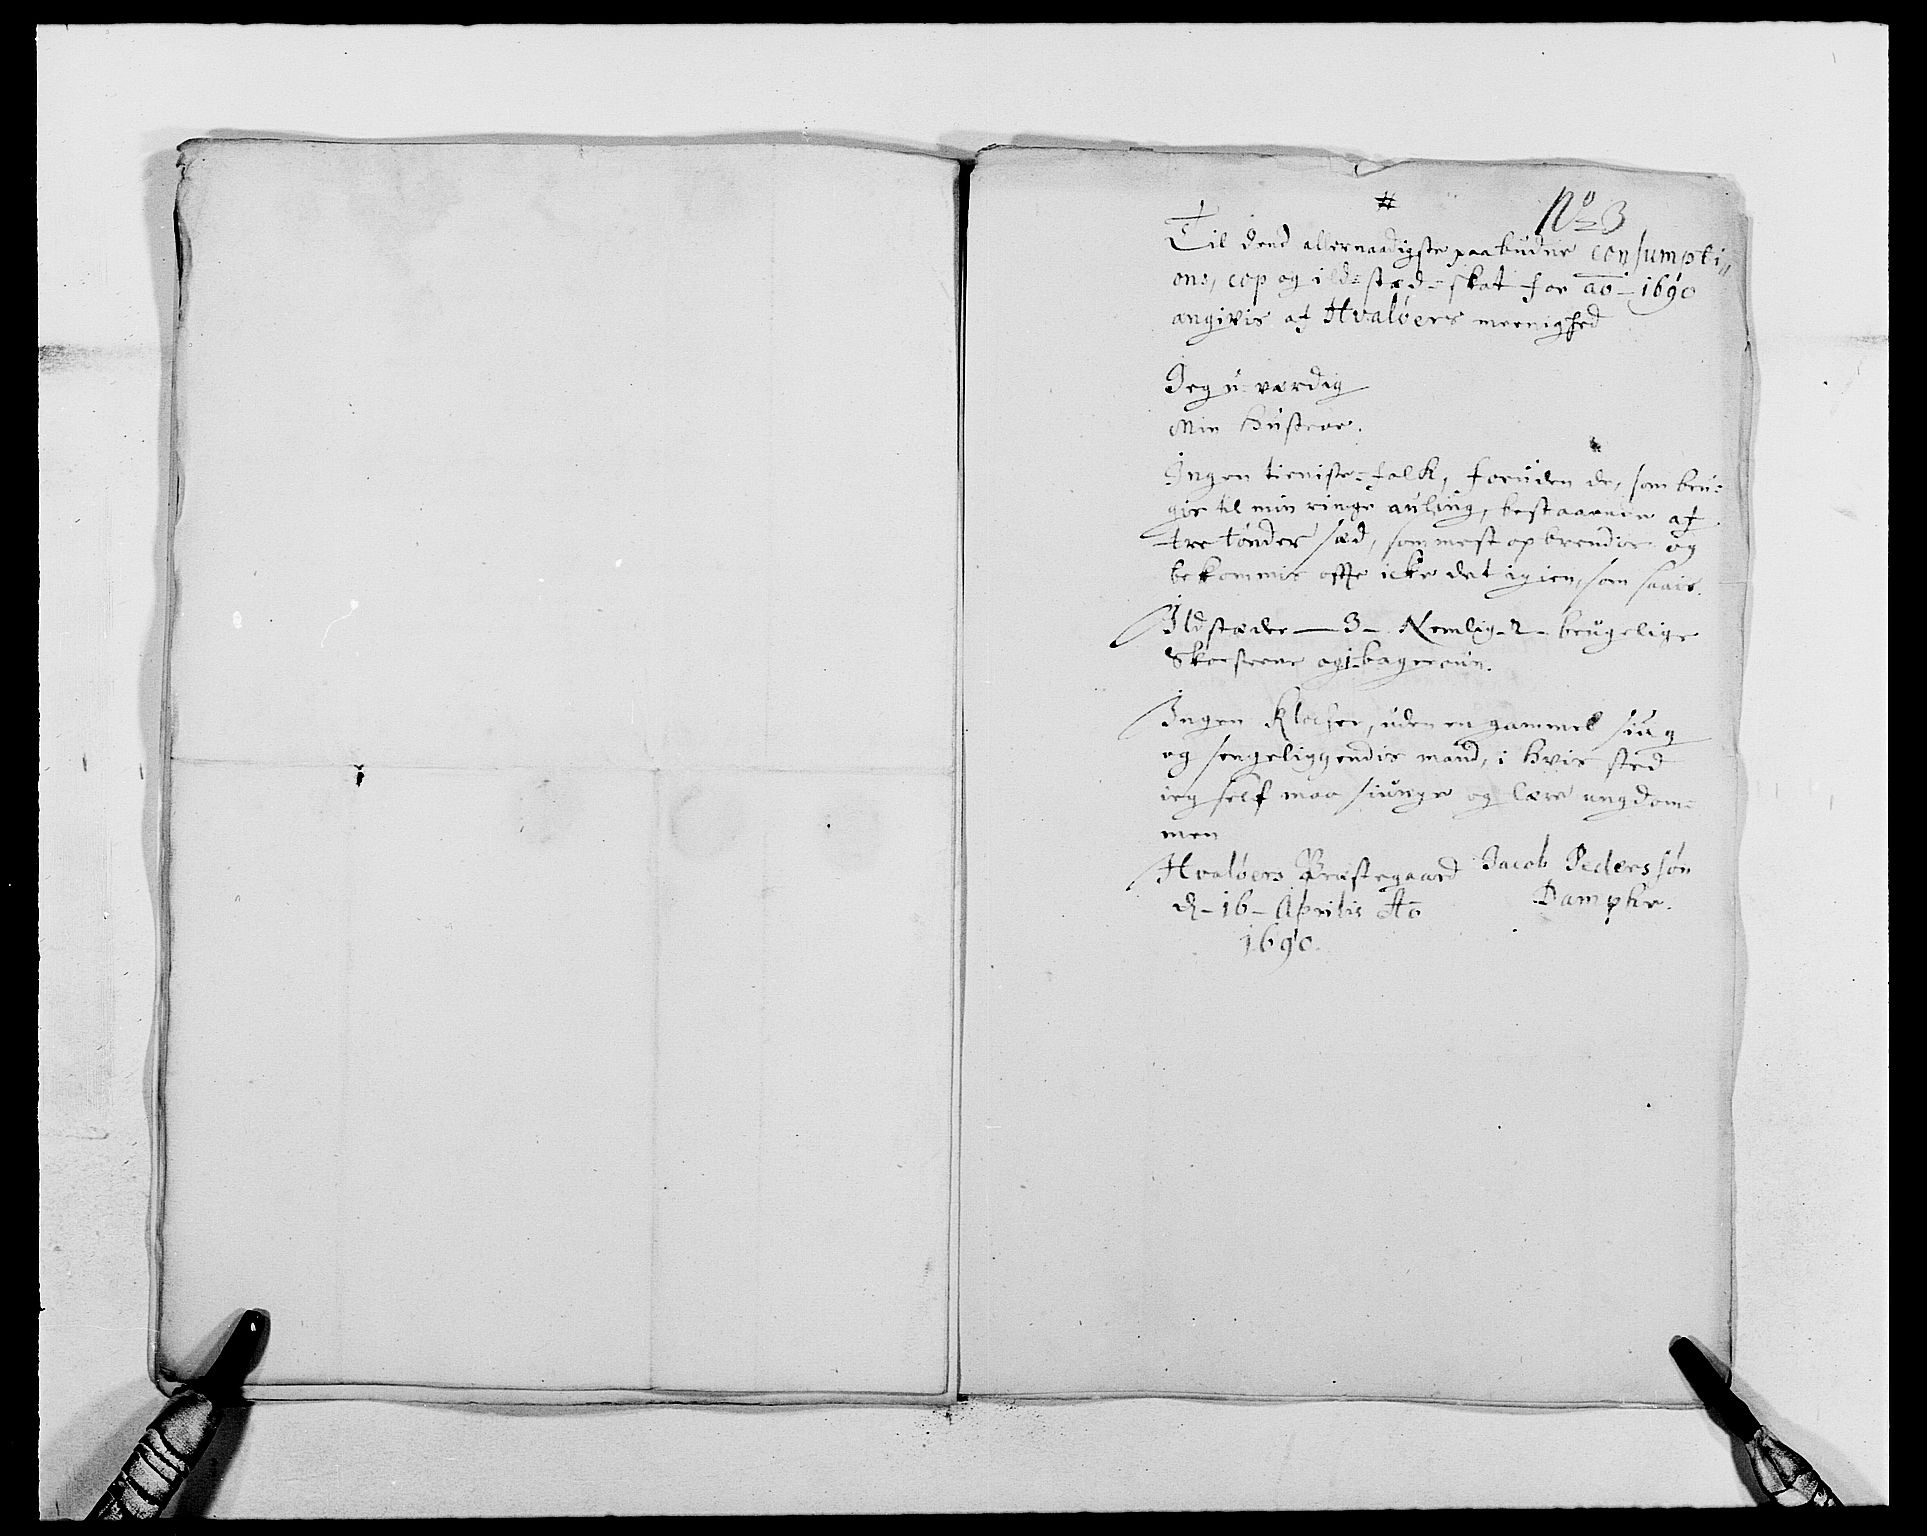 #
No 3
Til dend allernaadigste paabudne consumpti//
ons, cop og ild=stæd=skat for ao - 1690
angivis af Hvaløers meenighed
Jeg u-værdig
Min hustroe.
Ingen tieniste=folk, foruden de, som bru=
gis til min ringe auling, bestaaende af
tre tønder sæd, som mest op brendis og
bekommis offte icke det igien, som saais.
Ildstæder — 3 - Nemlig - 2 - brugelige
Skorsteene og 1 bagerovn.
Ingen Klocker, uden en gammel siug
og sengeliggendis mand, i hvis sted
ieg self maa siunge og lære ungdom=
men
Hvaløers Præstegaard Jacob Pederssøn
d - 16 - Aprilis Ao Dampke.
1690.